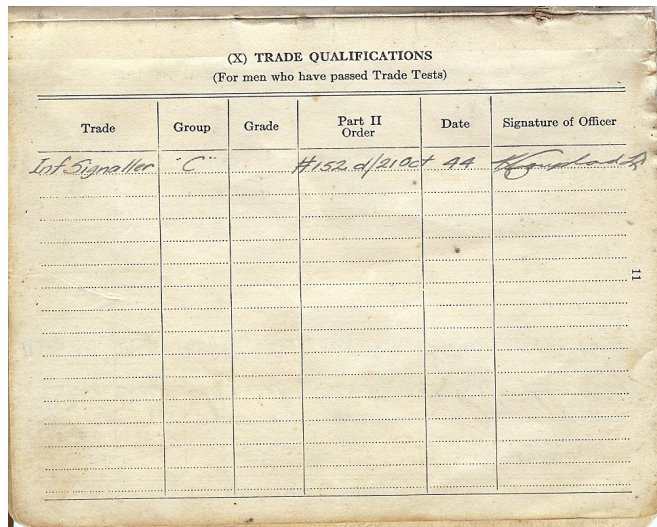 (X) TRADE QUALIFICATIONS
(For men who have passed Trade Tests)
Trade Group Grade Part II Order Date Signature of Officer
Inf Signaller "C" #152 d/21 Oct 44
11